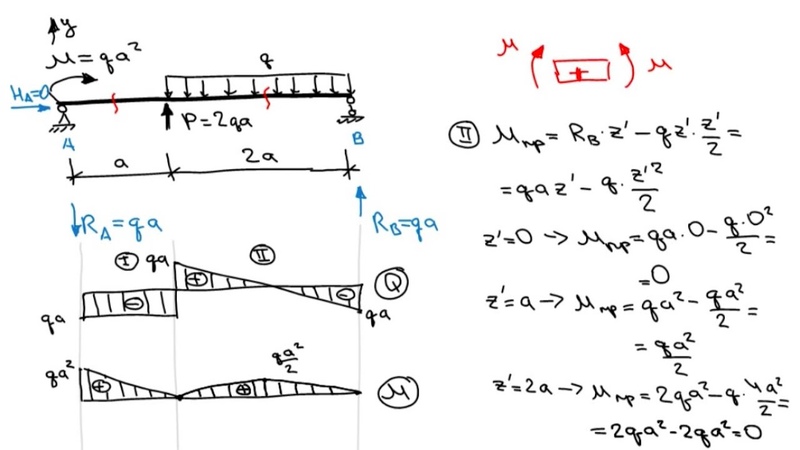 y
M = qa²
q
H_A=0
P=2qa
A
B
a
2a
R_A=qa
R_B=qa
I
II
qa
+
−
−
qa
qa
Q
qa²
+
qa²/2
+
M
M
+
M
II M_пр = R_B·z' − qz'·z'/2 =
= qaz' − q·z'²/2
z'=0 → M_пр = qa·0 − q·0²/2 =
=0
z'=a → M_пр = qa² − qa²/2 =
= qa²/2
z'=2a → M_пр = 2qa² − q·4a²/2 =
= 2qa² − 2qa² = 0